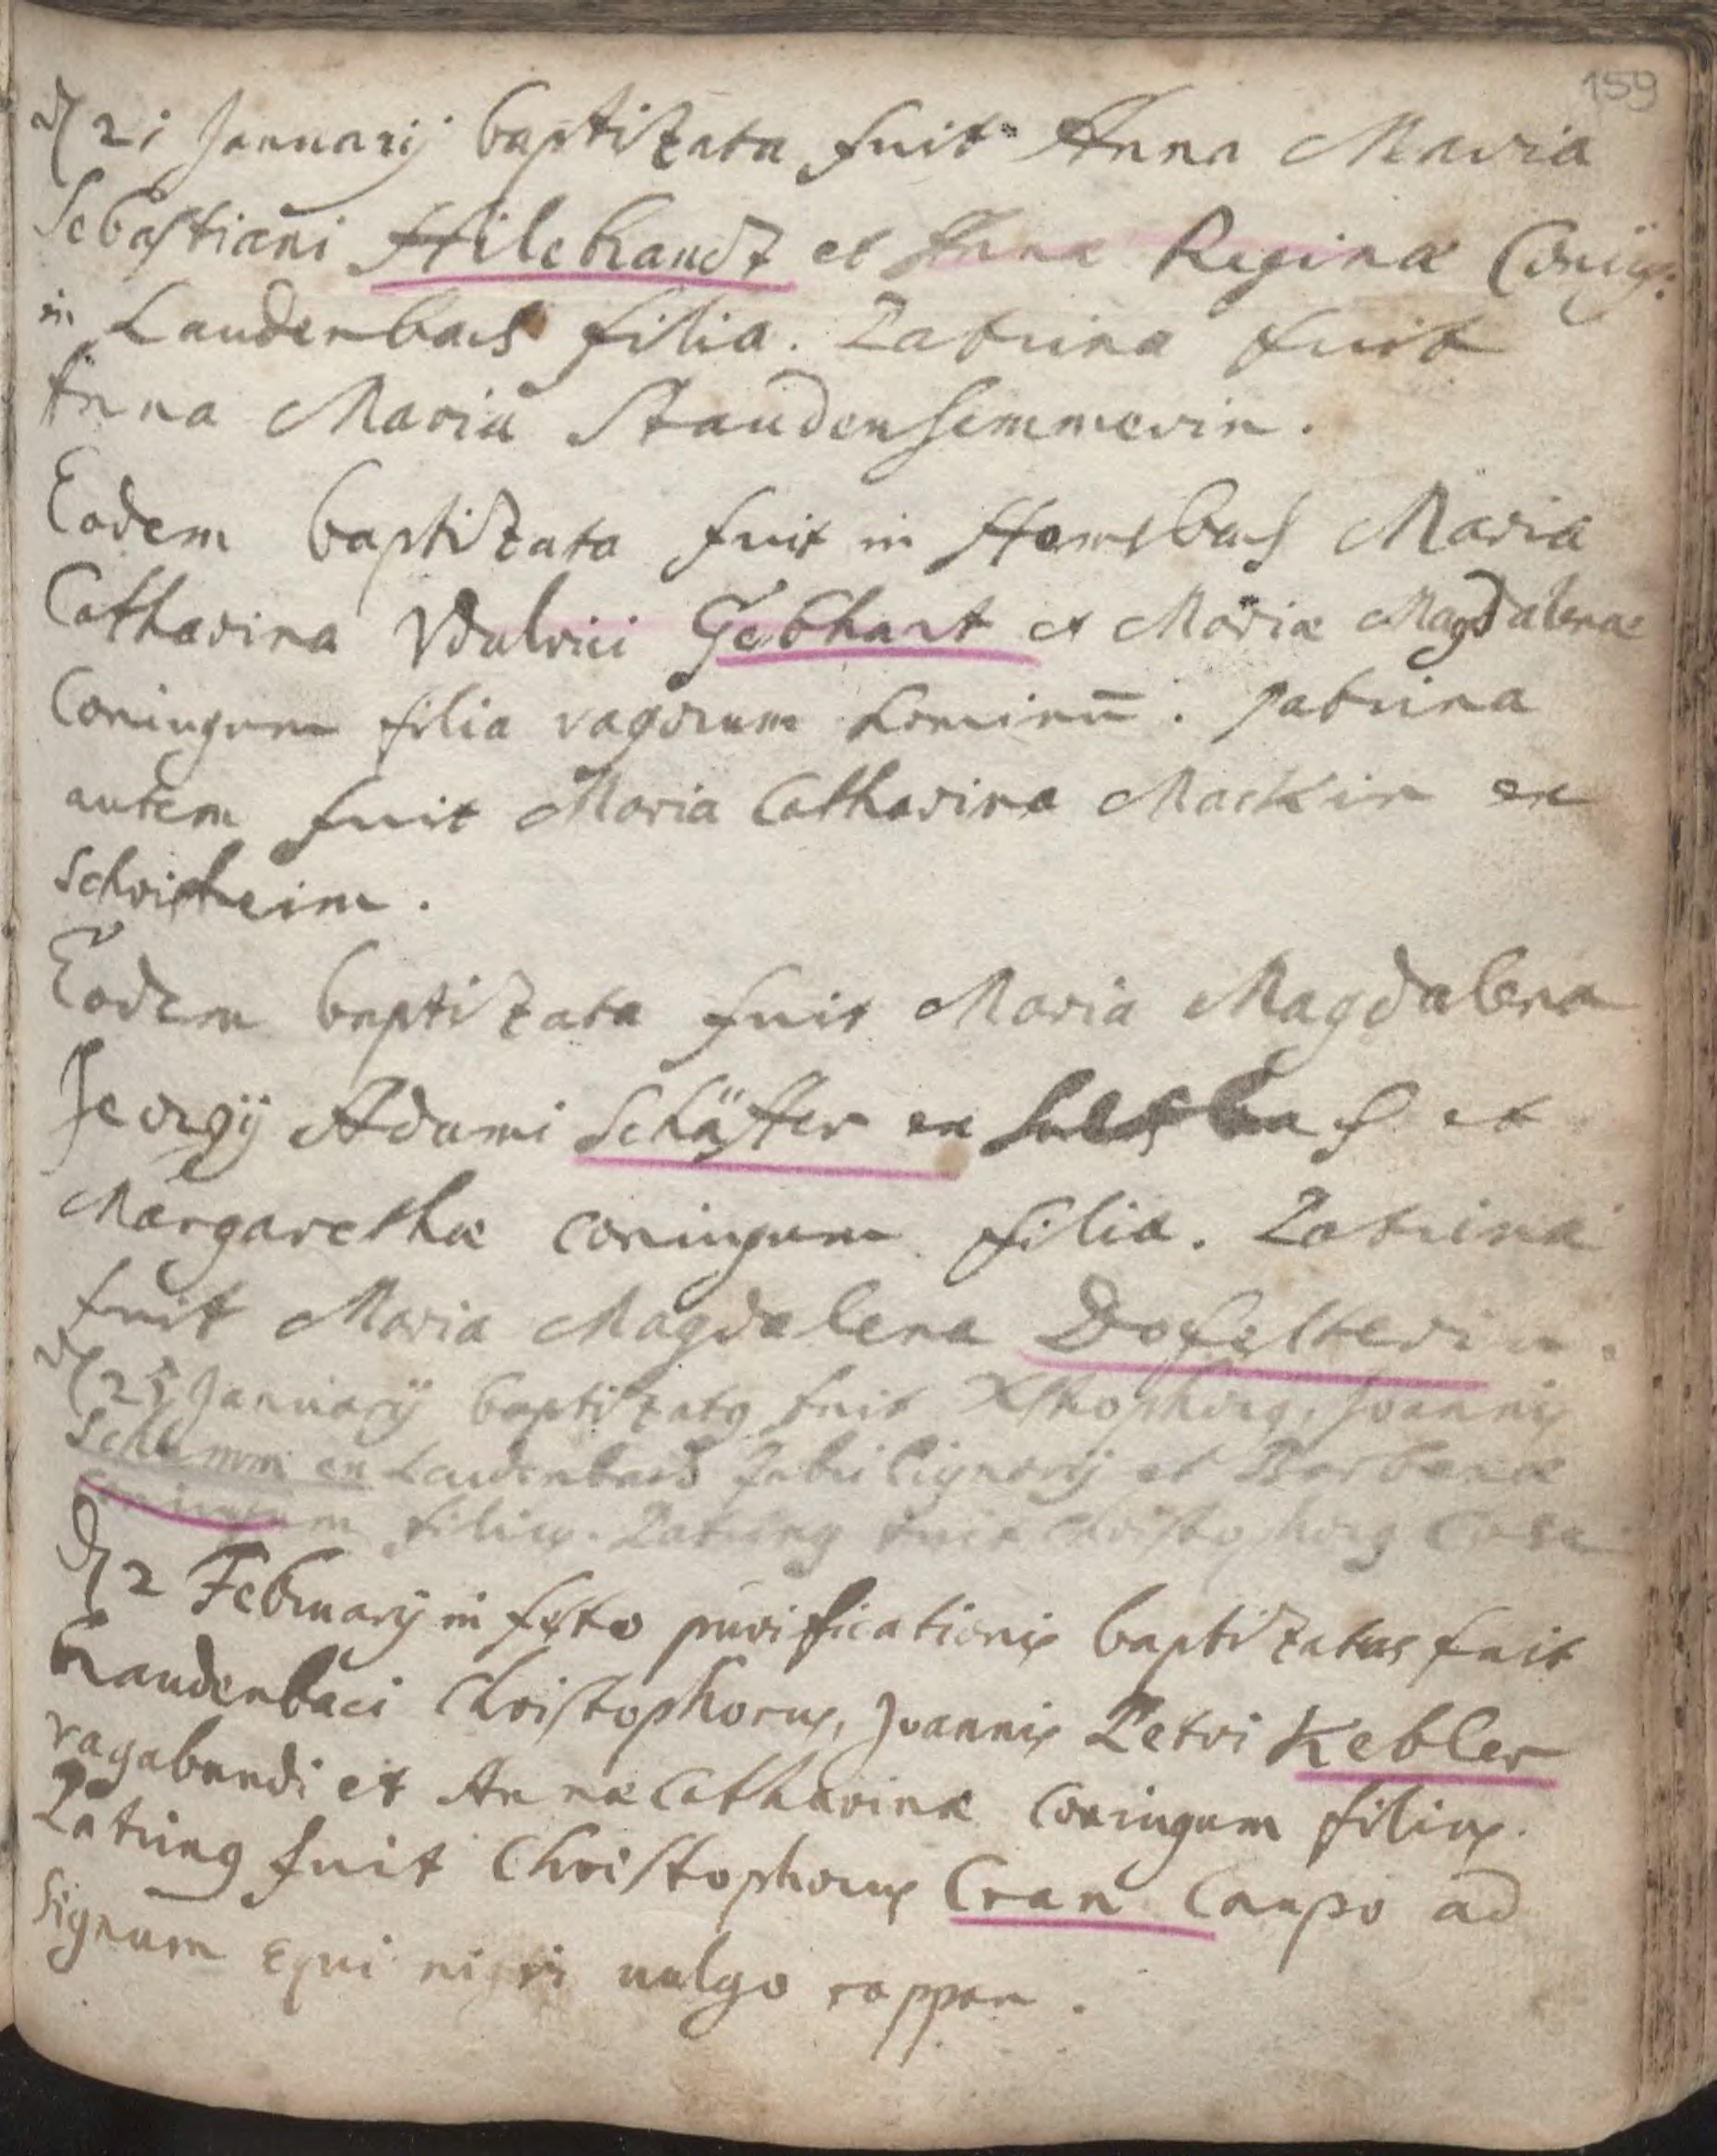 159
d 21 Januarij baptizata fuit Anna Maria
Sebastiani Hilebrandt et Annæ Reginæ Coniug:
in Laudenbach filia. Patrina fuit
Anna Maria Staudenhemmerin.
Eodem baptizata fuit in Hemsbach Maria
Catharina Vdalrici Gebhart et Mariæ Magdalenæ
Coniugum filia vagorum hominū. patrina
autem fuit Maria Catharina Mackin ex
Schrisheim.
Eodem baptizata fuit Maria Magdalena
Georgij Adami Schäffer ex Sultzbach et
Margarethæ coniugum filia. Patrina
fuit Maria Magdalena Dofelterin.
d 25 Januarij baptizatq fuit Xstophorq, Joannis
Schlamm ex Laudenbach fabri lignarij et Barbaræ
coniugum filius. Patrinq fuit Christophorq Cran
d 2 Februarij in festo purificationis baptizatus fuit
Laudenbaci Christophorus, Joannis Petri Kebler
vagabundi et Annæ Catharinæ coniugum filius.
Patrinq fuit Christophorus Cran Caupo ad
signum equi nigri vulgo rappen.